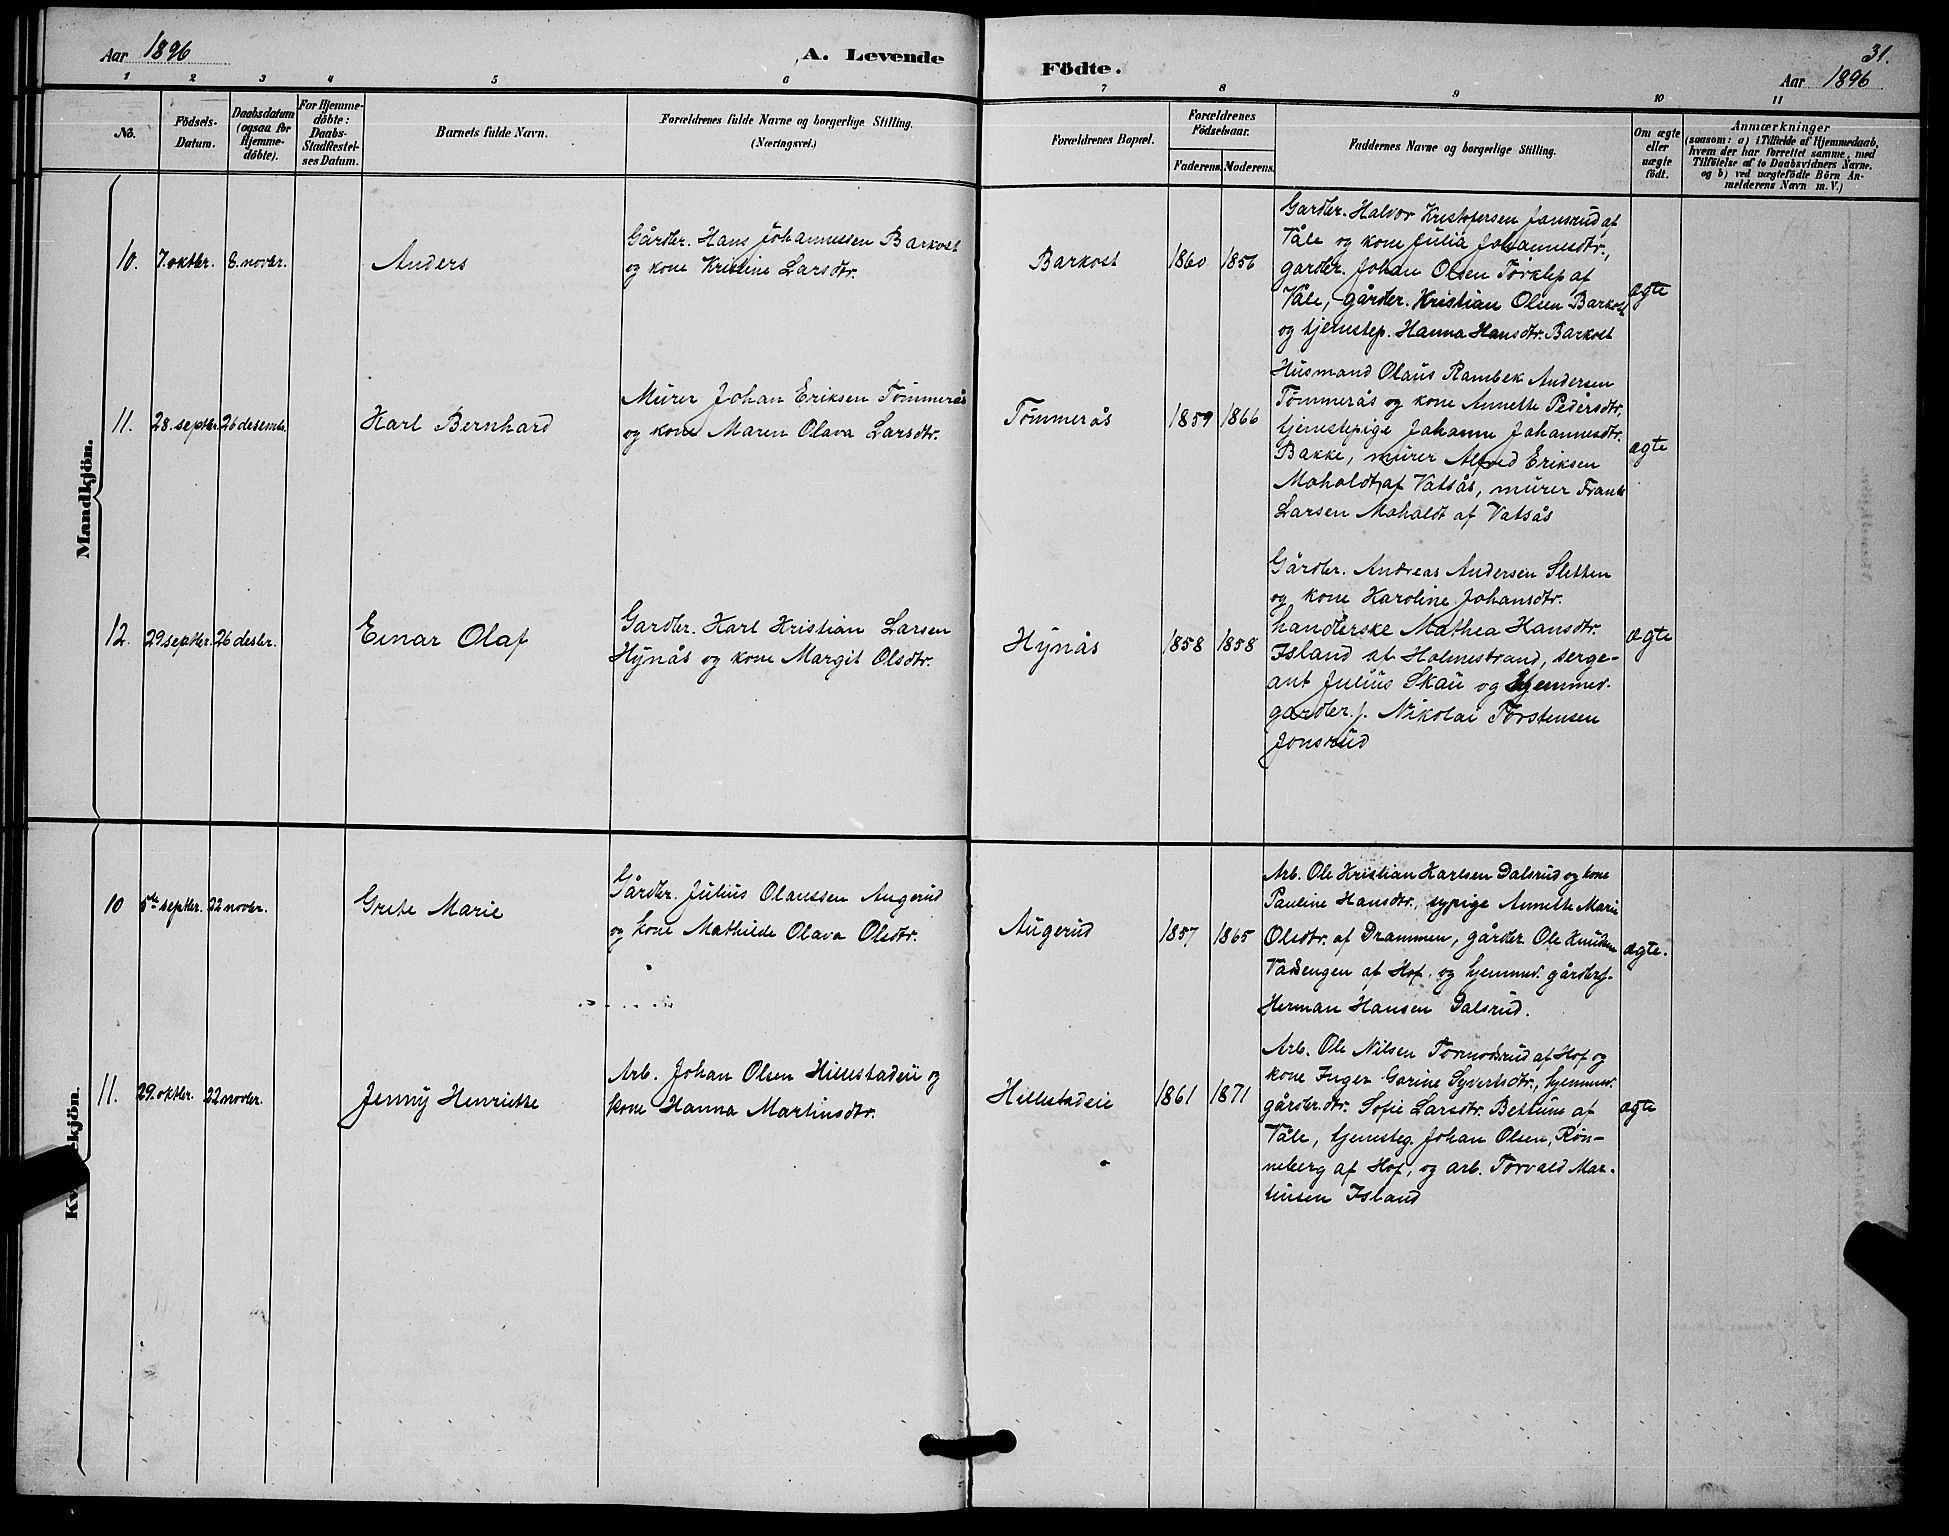 Aar 1896
A. Levende
Födte.
31.
Aar 1896
1 2 3 4 5 6 7 8 9 10 11
No.
Födsels-
Datum.
Daabsdatum
(ogsaa for
Hjemme-
döbte).
For Hjemme-
döbte:
Daabs-
Stadfæstel-
ses Datum.
Barnets fulde Navn.
Forældrenes fulde Navne og borgerlige Stilling.
(Næringsvei.)
Forældrenes Bopæl.
Forældrenes
Födselsaar.
Faderens. Moderens.
Faddernes Navne og borgerlige Stilling.
Om ægte
eller
uægte
födt.
Anmærkninger
(saasom: a) i Tilfælde af Hjemmedaab,
hvem der har forrettet samme, med
Tilföielse af to Daabsvidners Navne,
og b) ved uægtefödte Börn An-
melderens Navn m. V.)
Mandkjön.
10. 7. oktbr. 8. novbr.
Anders
Gårdbr. Hans Johannessen Barkost
og kone Kristine Larsdtr.
Barkost
1860 1856
Gardbr. Halvor Kristofersen Jansrud af
Våle og kone Julia Johannesdtr.,
gardbr. Johan Olsen Torklep af
Våle, gårdbr. Kristian Olsen Barkost
og tjenestep. Hanna Hansdtr. Barkost
ægte
11. 28. septbr. 26 desembr.
Karl Bernhard
Murer Johan Eriksen Tømmerås
og kone Maren Olava Larsdtr.
Tømmerås
1859 1866
Husmand Olaus Rambek Andersen
Tømmerås og kone Annette Pedersdtr.
tjenestepige Johanne Johannesdtr.
Bakke, murer Alfred Eriksen
Moholdt af Vatsås, murer Frants
Larsen Moholdt af Vatsås
ægte
12. 29 septbr. 26 desbr.
Einar Olaf
Gardbr. Karl Kristian Larsen
Hynås og kone Margit Olsdtr.
Hynås
1858 1858
Gårdbr. Andreas Andersen Sletten
og kone Karoline Johansdtr.
handlerske Mathea Hansdtr.
Island af Holmestrand, serge-
ant Julius Skau og hjemmev.
gardbr.s. Nikolai Torstensen
Jonsrud
ægte
Kv ekjön.
10 5te septbr. 22 novbr.
Grete Marie
Gårdbr. Julius Olaussen Augerud
og kone Mathilde Olava Olsdtr.
Augerud
1857 1865
Arb. Ole Kristian Karlsen Dalsrud og kone
Pauline Hansdtr., sypige Annette Marie
Olsdtr. af Drammen, gårdbr. Ole Knudsen
Vadsengen af Hof. og hjemmev. gårdbrs.
Herman Hansen Dalsrud.
ægte.
11. 29. oktbr. 22 novbr.
Jenny Henriette
Arb. Johan Olsen Hillestadeie og
kone Hanna Martinsdtr.
Hillestadeie
1861 1871
Arb. Ole Nilsen Tormodsrud af Hof og
kone Inger Gorine Syvertsdtr., hjemmev.
gårdbr.dtr. Sofie Larsdtr. Bettum af
Våle, tjenesteg. Johan Olsen, Røn-
neberg af Hof, og arb. Torvald Mar-
tinsen Island
ægte